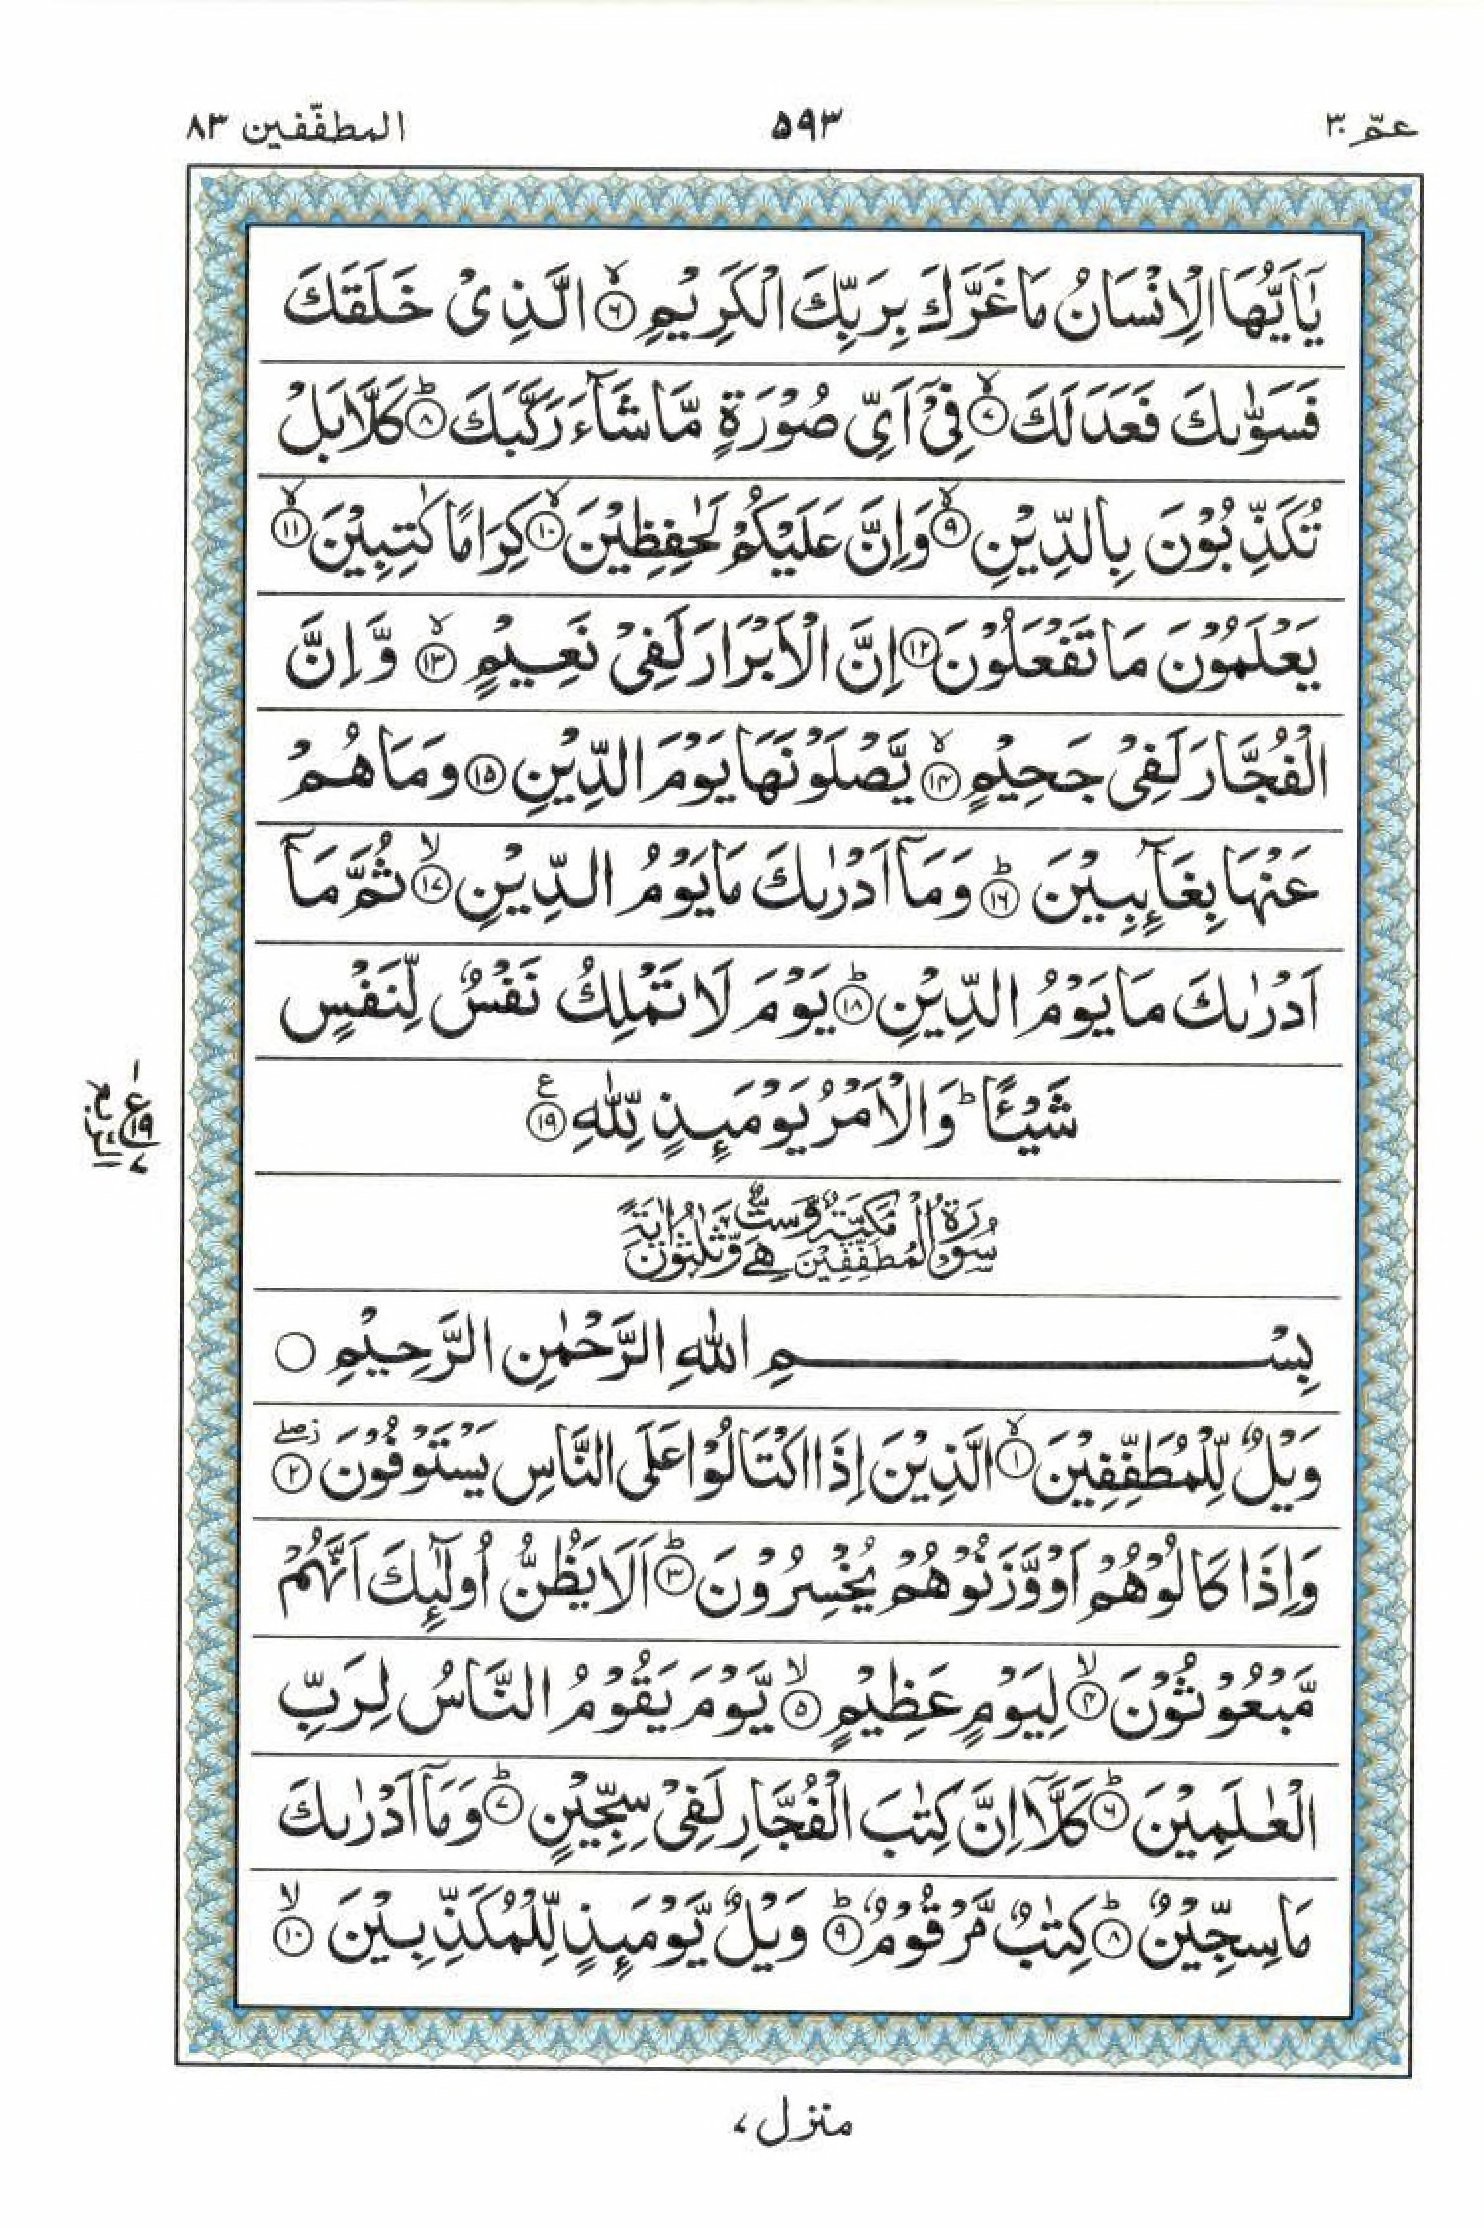 عمّ ٣٠
٥٩٣
المطفّفين ٨٣
يٰٓاَيُّهَا الْاِنْسَانُ مَا غَرَّكَ بِرَبِّكَ الْكَرِيْمِ ۙ‏﴿۶﴾ الَّذِىْ خَلَقَكَ
فَسَوّٰىكَ فَعَدَلَكَ ۙ‏﴿۷﴾ فِىْۤ اَىِّ صُوْرَةٍ مَّا شَآءَ رَكَّبَكَ ؕ‏﴿۸﴾ كَلَّا بَلْ
تُكَذِّبُوْنَ بِالدِّيْنِ ۙ‏﴿۹﴾ وَاِنَّ عَلَيْكُمْ لَحٰفِظِيْنَ ۙ‏﴿۱۰﴾ كِرَامًا كٰتِبِيْنَ ۙ‏﴿۱۱﴾
يَعْلَمُوْنَ مَا تَفْعَلُوْنَ ‏﴿۱۲﴾ اِنَّ الْاَبْرَارَ لَفِىْ نَعِيْمٍ ۙ‏﴿۱۳﴾ وَّاِنَّ
الْفُجَّارَ لَفِىْ جَحِيْمٍ ۙ‏﴿۱۴﴾ يَّصْلَوْنَهَا يَوْمَ الدِّيْنِ ‏﴿۱۵﴾ وَمَا هُمْ
عَنْهَا بِغَآئِبِيْنَ ؕ‏﴿۱۶﴾ وَمَاۤ اَدْرٰىكَ مَا يَوْمُ الدِّيْنِ ۙ‏﴿۱۷﴾ ثُمَّ مَاۤ
اَدْرٰىكَ مَا يَوْمُ الدِّيْنِ ؕ‏﴿۱۸﴾ يَوْمَ لَا تَمْلِكُ نَفْسٌ لِّنَفْسٍ
شَيْـًٔا ؕ وَالْاَمْرُ يَوْمَئِذٍ لِّلّٰهِ ‏﴿۱۹﴾
سُوْرَةُ الْمُطَفِّفِيْنَ مَكِّيَّةٌ وَّهِىَ سِتٌّ وَّثَلٰثُوْنَ اٰيَةً
بِسْمِ اللّٰهِ الرَّحْمٰنِ الرَّحِيْمِ ○
وَيْلٌ لِّلْمُطَفِّفِيْنَ ۙ‏﴿۱﴾ الَّذِيْنَ اِذَا اكْتَالُوْا عَلَى النَّاسِ يَسْتَوْفُوْنَ ‏﴿۲﴾
وَاِذَا كَالُوْهُمْ اَوْ وَّزَنُوْهُمْ يُخْسِرُوْنَ ؕ‏﴿۳﴾ اَلَا يَظُنُّ اُولٰٓئِكَ اَنَّهُمْ
مَّبْعُوْثُوْنَ ۙ‏﴿۴﴾ لِيَوْمٍ عَظِيْمٍ ۙ‏﴿۵﴾ يَّوْمَ يَقُوْمُ النَّاسُ لِرَبِّ
الْعٰلَمِيْنَ ؕ‏﴿۶﴾ كَلَّاۤ اِنَّ كِتٰبَ الْفُجَّارِ لَفِىْ سِجِّيْنٍ ؕ‏﴿۷﴾ وَمَاۤ اَدْرٰىكَ
مَا سِجِّيْنٌ ؕ‏﴿۸﴾ كِتٰبٌ مَّرْقُوْمٌ ؕ‏﴿۹﴾ وَيْلٌ يَّوْمَئِذٍ لِّلْمُكَذِّبِيْنَ ۙ‏﴿۱۰﴾
منزل ۷